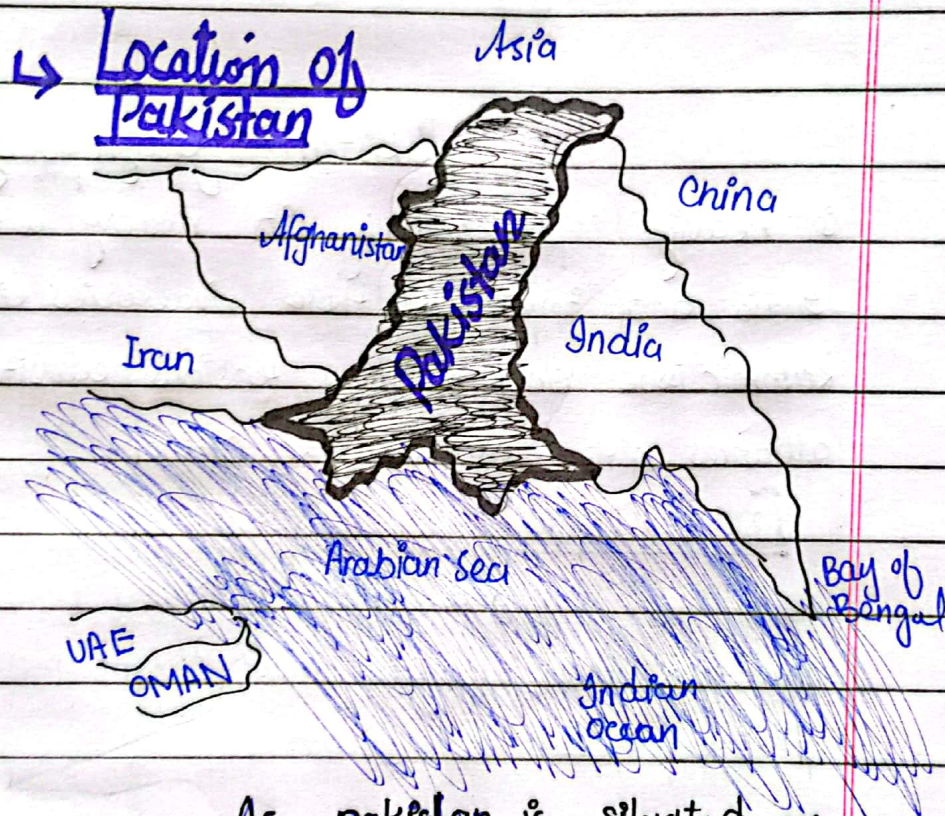 Asia
↳ Location of
Pakistan
China
Afghanistan
Pakistan
India
Iran
Arabian Sea
Bay of
Bengal
UAE
OMAN
Indian
Ocean
As pakistan is situated